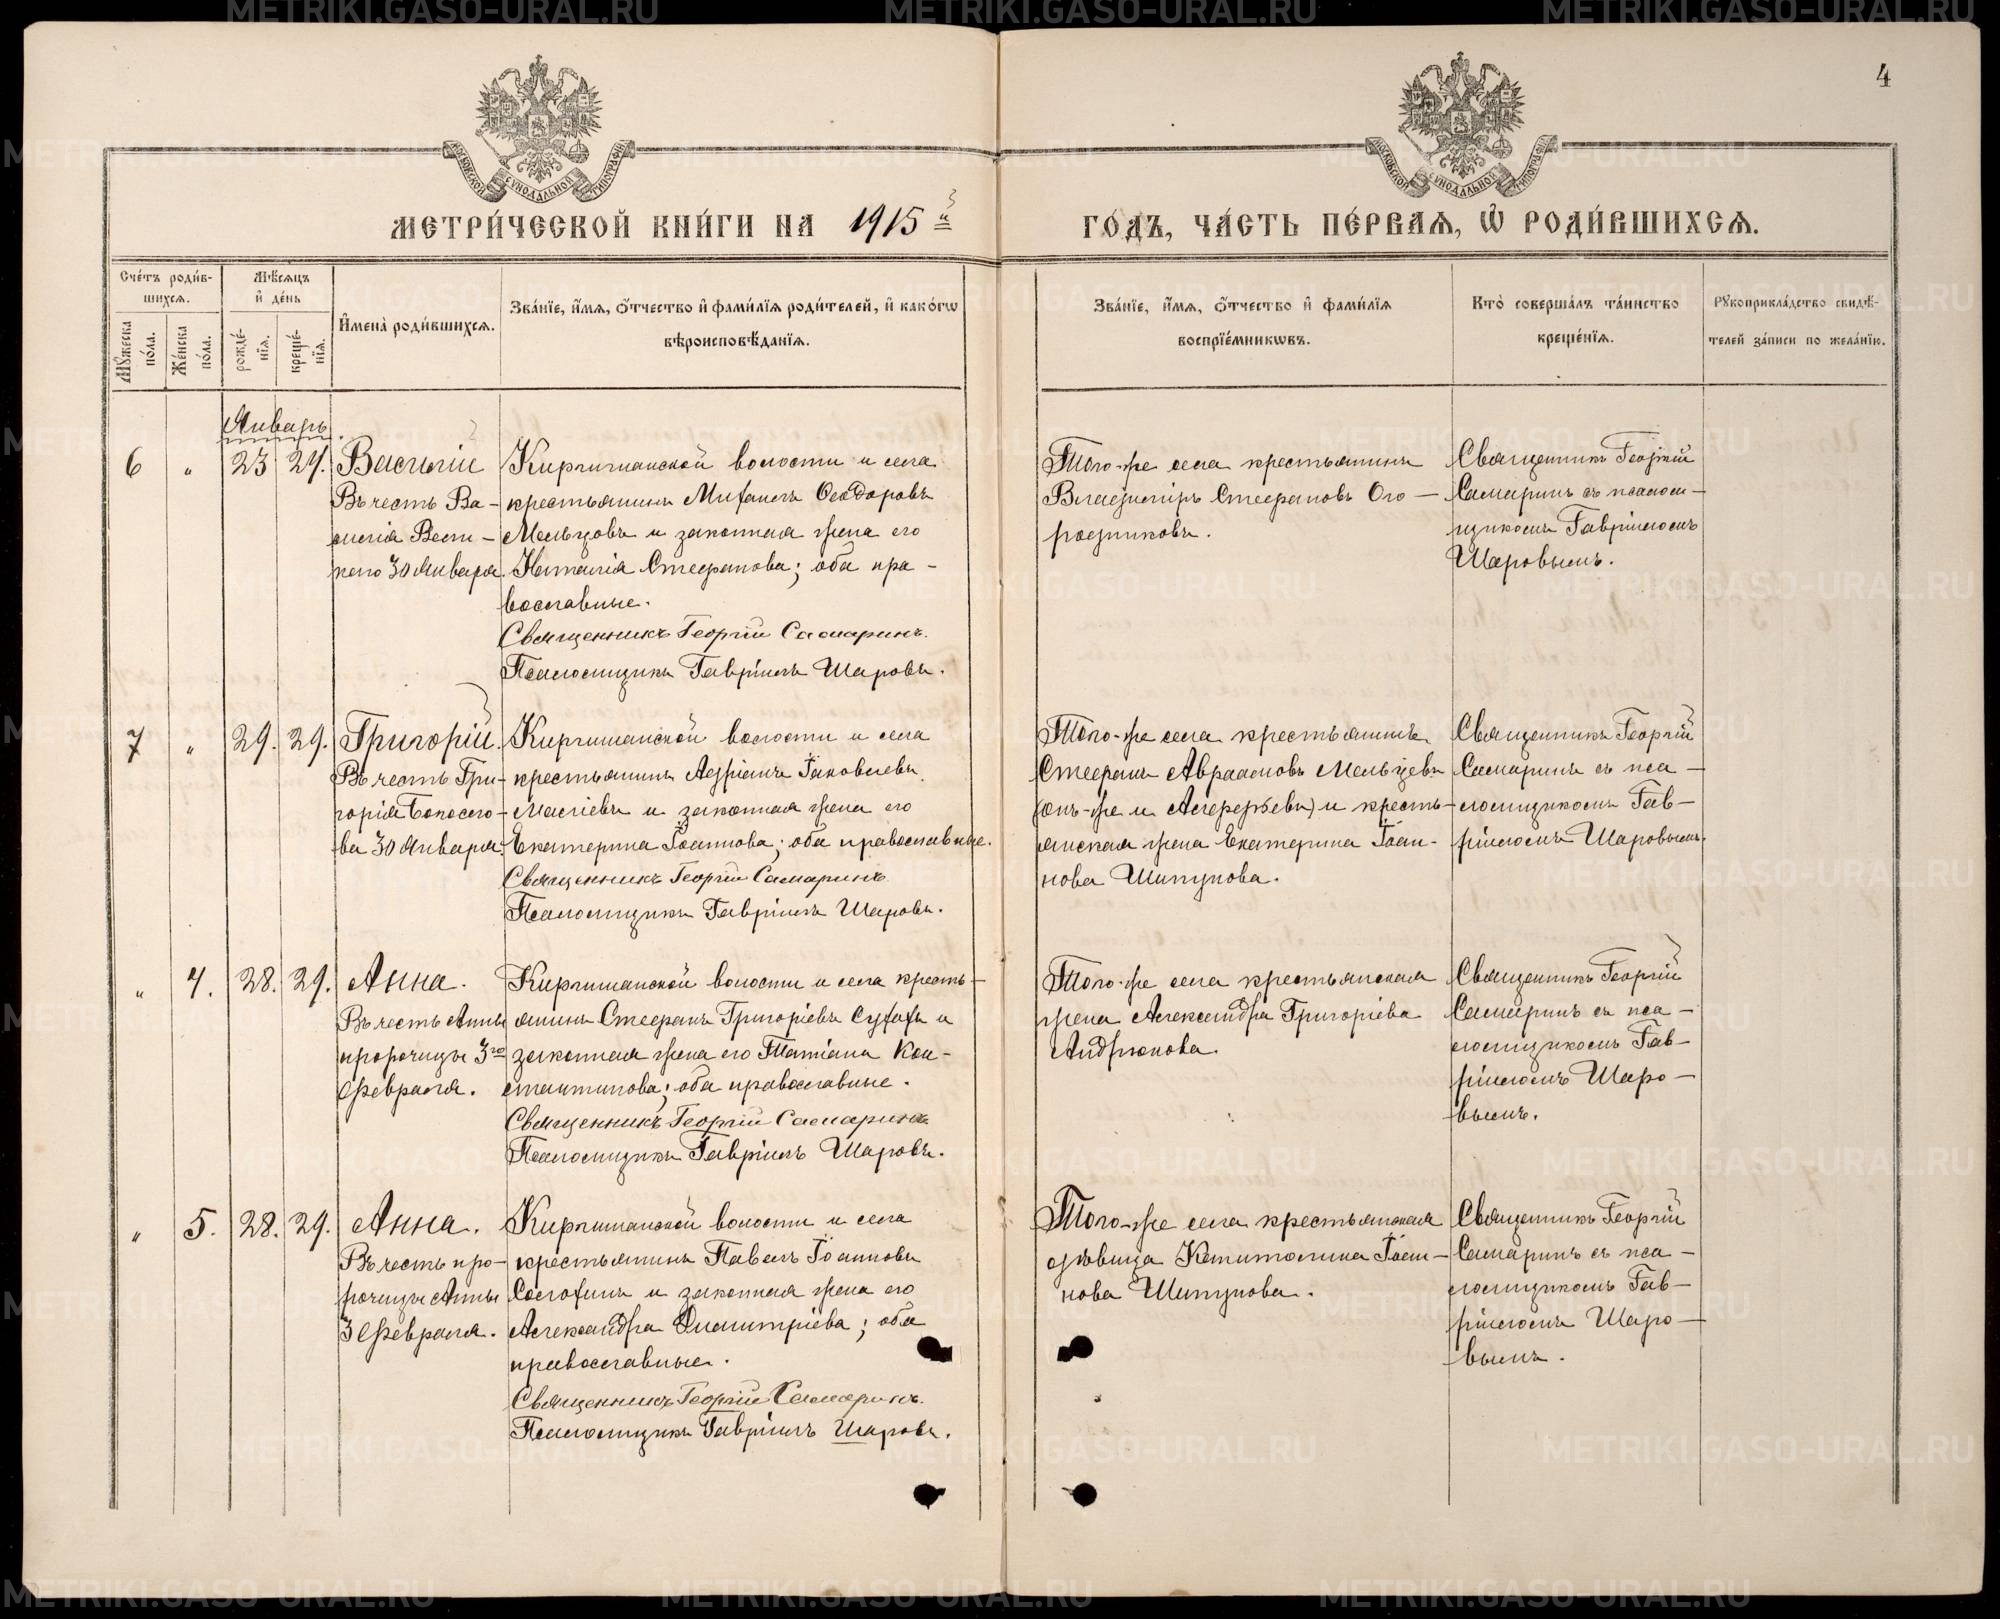 4
МОСКОВСКОЙ СѴНОДАЛЬНОЙ ТИПОГРАФІИ
МОСКОВСКОЙ СѴНОДАЛЬНОЙ ТИПОГРАФІИ
МЕТРИ́ЧЕСКОЙ КНИ́ГИ НА 1915й
ГО́ДЪ, ЧА́СТЬ ПЕ́РВАѦ, Ѽ РОДИ́ВШИХСѦ.
Сче́тъ роди́в-
шихсѧ.
Мꙋ́жеска по́ла.
Же́нска по́ла.
Мѣ́сѧцъ
и҆ де́нь
рожде́-
нїѧ.
креще́-
нїѧ.
И҆мена̀ роди́вшихсѧ.
Зва́нїе, и҆́мѧ, ѻ҆́тчество и҆ фами́лїѧ роди́телей, и҆ како́гѡ
вѣроисповѣ́данїѧ.
Зва́нїе, и҆́мѧ, ѻ҆́тчество и҆ фами́лїѧ
воспрїе́мникѡвъ.
Кто̀ соверша́лъ та́инство
креще́нїѧ.
Рꙋкоприкла́дство свидѣ́-
телей за́писи по жела́нїю.
Январь.
6 " 23 24. Василій
Въ честь Ва-
силія Вели-
каго 30 Января.
Киргишанской волости и села
крестьянинъ Михаилъ Ѳеодоровъ
Мельцовъ и законная жена его
Наталія Стефанова; оба пра-
вославные.
Священникъ Георгій Самаринъ.
Псаломщикъ Гавріилъ Шаровъ.
Того-же села крестьянинъ
Владиміръ Стефановъ Ого-
родниковъ.
Священникъ Георгій
Самаринъ съ псалом-
щикомъ Гавріиломъ
Шаровымъ.
7 " 29. 29. Григорій.
Въ честь Гри-
горія Богосло-
ва 30 Января.
Киргишанской волости и села
крестьянинъ Адріанъ Іаковлевъ
и законная жена его
Екатерина Іоаннова; оба православные.
Священникъ Георгій Самаринъ
Псаломщикъ Гавріилъ Шаровъ.
Того-же села крестьянинъ
Стефанъ Авраамовъ Мельцовъ
(онъ-же и) и кресть-
янская жена Екатерина Іоан-
нова Шипунова.
Священникъ Георгій
Самаринъ съ пса-
ломщикомъ Гав-
ріиломъ Шаровымъ.
" 4. 28. 29. Анна.
Въ честь Анны
пророчицы 3го
февраля.
Киргишанской волости и села кресть-
янинъ Стефанъ Григоріевъ и
законная жена его Татіана Кон-
стантинова; оба православные.
Священникъ Георгій Самаринъ
Псаломщикъ Гавріилъ Шаровъ.
Того-же села крестьянская
жена Александра Григоріева
Андрюкова.
Священникъ Георгій
Самаринъ съ пса-
ломщикомъ Гав-
ріиломъ Шаро-
вымъ.
" 5. 28. 29. Анна.
Въ честь про-
рочицы Анны
3 Февраля.
Киргишанской волости и села
крестьянинъ Павелъ Іоанновъ
и законная жена его
Александра Димитріева; оба
православные.
Священникъ Георгій Самаринъ.
Псаломщикъ Гавріилъ Шаровъ.
Того-же села крестьянская
дѣвица Капитолина Іоан-
нова Шипунова.
Священникъ Георгій
Самаринъ съ пса-
ломщикомъ Гав-
ріиломъ Шаро-
вымъ.
METRIKI.GASO-URAL.RU